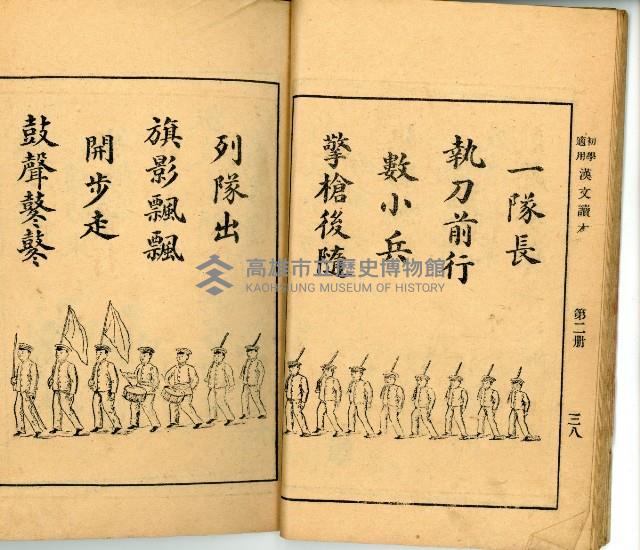 初學
適用
漢文讀本
第二册
三八
一隊長
執刀前行
數小兵
擎槍後隨
列隊出
旗影飄飄
開步走
鼓聲鼕鼕
高雄市立歷史博物館
KAOHSIUNG MUSEUM OF HISTORY